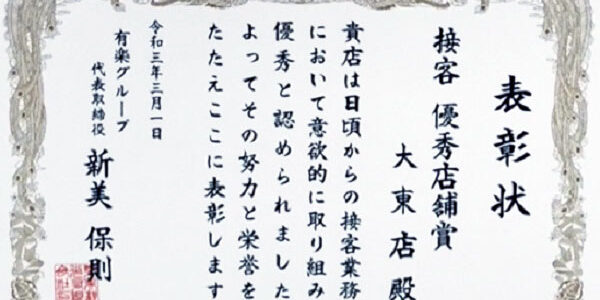 表彰状
接客 優秀店舗賞
大東店殿
貴店は日頃からの接客業務
において意欲的に取り組み
優秀と認められました
よってその努力と栄誉を
たたえここに表彰します
令和三年三月一日
有楽グループ
代表取締役
新美 保則